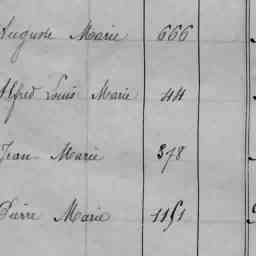 Auguste Marie 666
Alfred Louis Marie 44
Jean Marie 378
Pierre Marie 1151